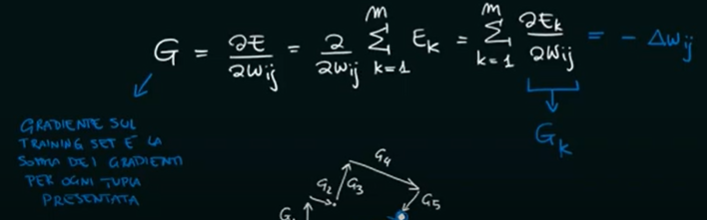 G = ∂E/∂wij = ∂/∂wij m Σ k=1 Ek = m Σ k=1 ∂Ek/∂wij = - Δwij
Gk
GRADIENTE SUL
TRAINING SET È LA
SOMMA DEI GRADIENTI
PER OGNI TUPLA
PRESENTATA
G4
G2
G3
G5
G1